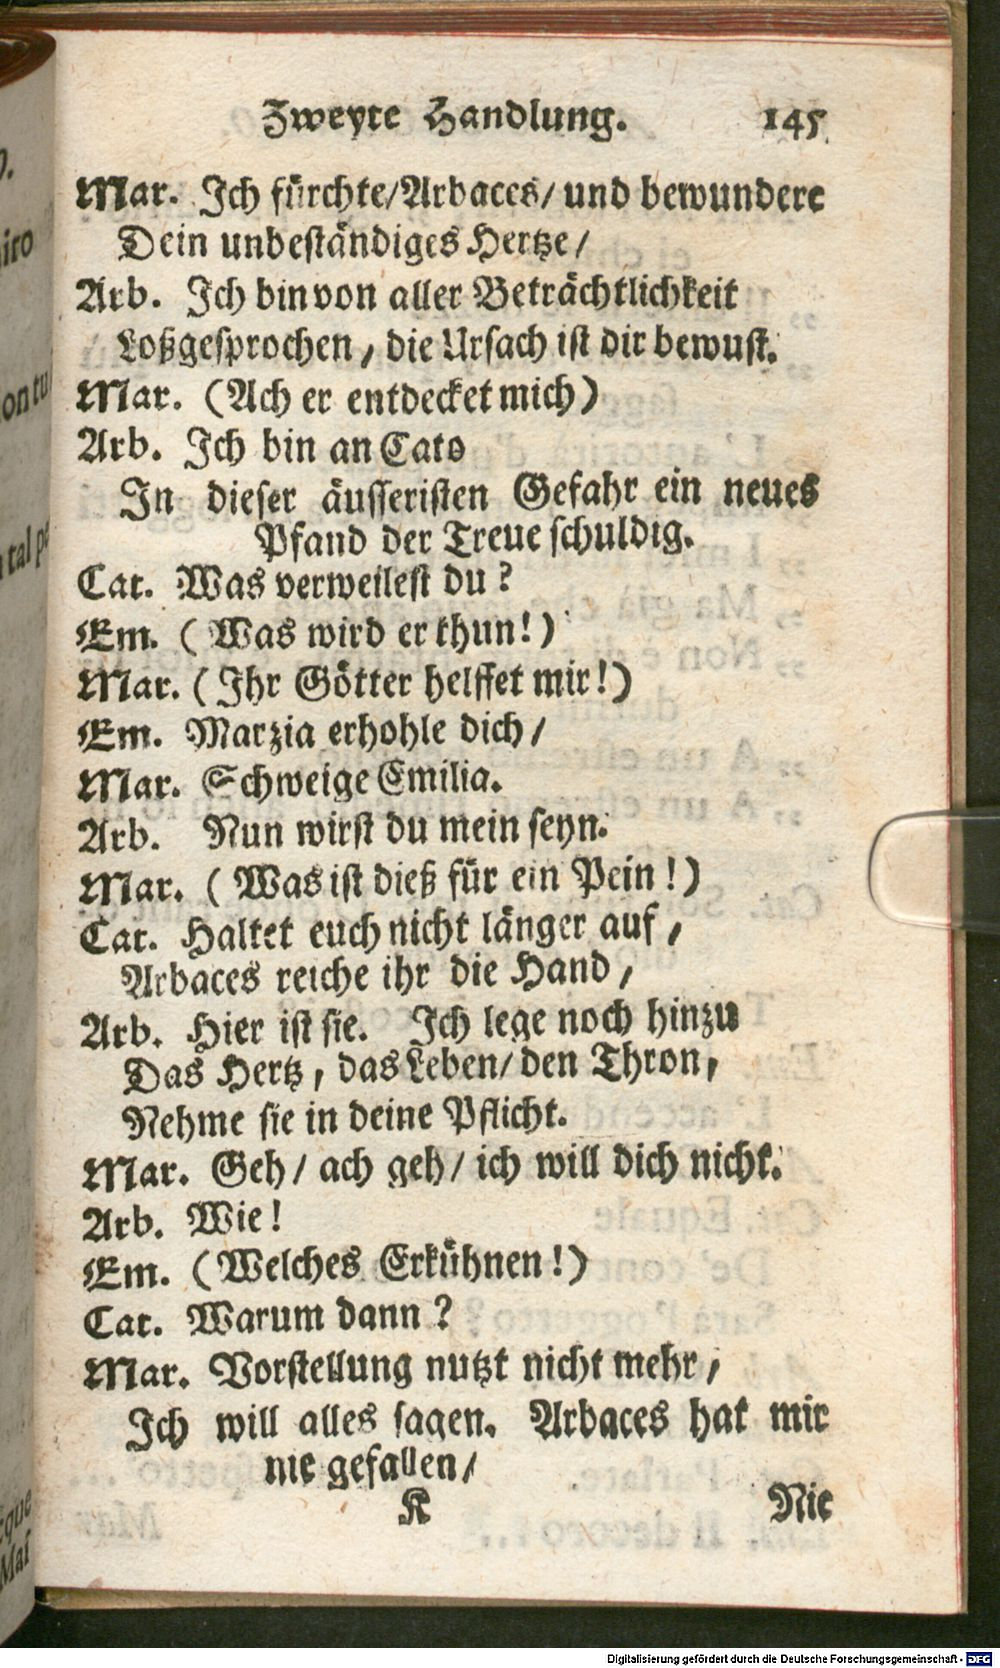 Zweyte Handlung. 145
Mar. Ich fürchte/Arbaces/ und bewundere
Dein unbeständiges Hertze/
Arb. Ich bin von aller Beträchtlichkeit
Loßgesprochen, die Ursach ist dir bewust.
Mar. (Ach er entdecket mich)
Arb. Ich bin an Cato
In dieser äusseristen Gefahr ein neues
Pfand der Treue schuldig.
Cat. Was verweilest du?
Em. (Was wird er thun!)
Mar. (Ihr Götter helffet mir!)
Em. Marzia erhohle dich/
Mar. Schweige Emilia.
Arb. Nun wirst du mein seyn.
Mar. (Was ist dieß für ein Pein!)
Cat. Haltet euch nicht länger auf,
Arbaces reiche ihr die Hand,
Arb. Hier ist sie. Ich lege noch hinzu
Das Hertz, das Leben/ den Thron,
Nehme sie in deine Pflicht.
Mar. Geh/ ach geh/ ich will dich nicht.
Arb. Wie!
Em. (Welches Erkühnen!)
Cat. Warum dann?
Mar. Vorstellung nutzt nicht mehr,
Ich will alles sagen. Arbaces hat mir
nie gefallen/
K Nie
iro
on tu
tal pe
que
Mas
Digitalisierung gefördert durch die Deutsche Forschungsgemeinschaft - DFG